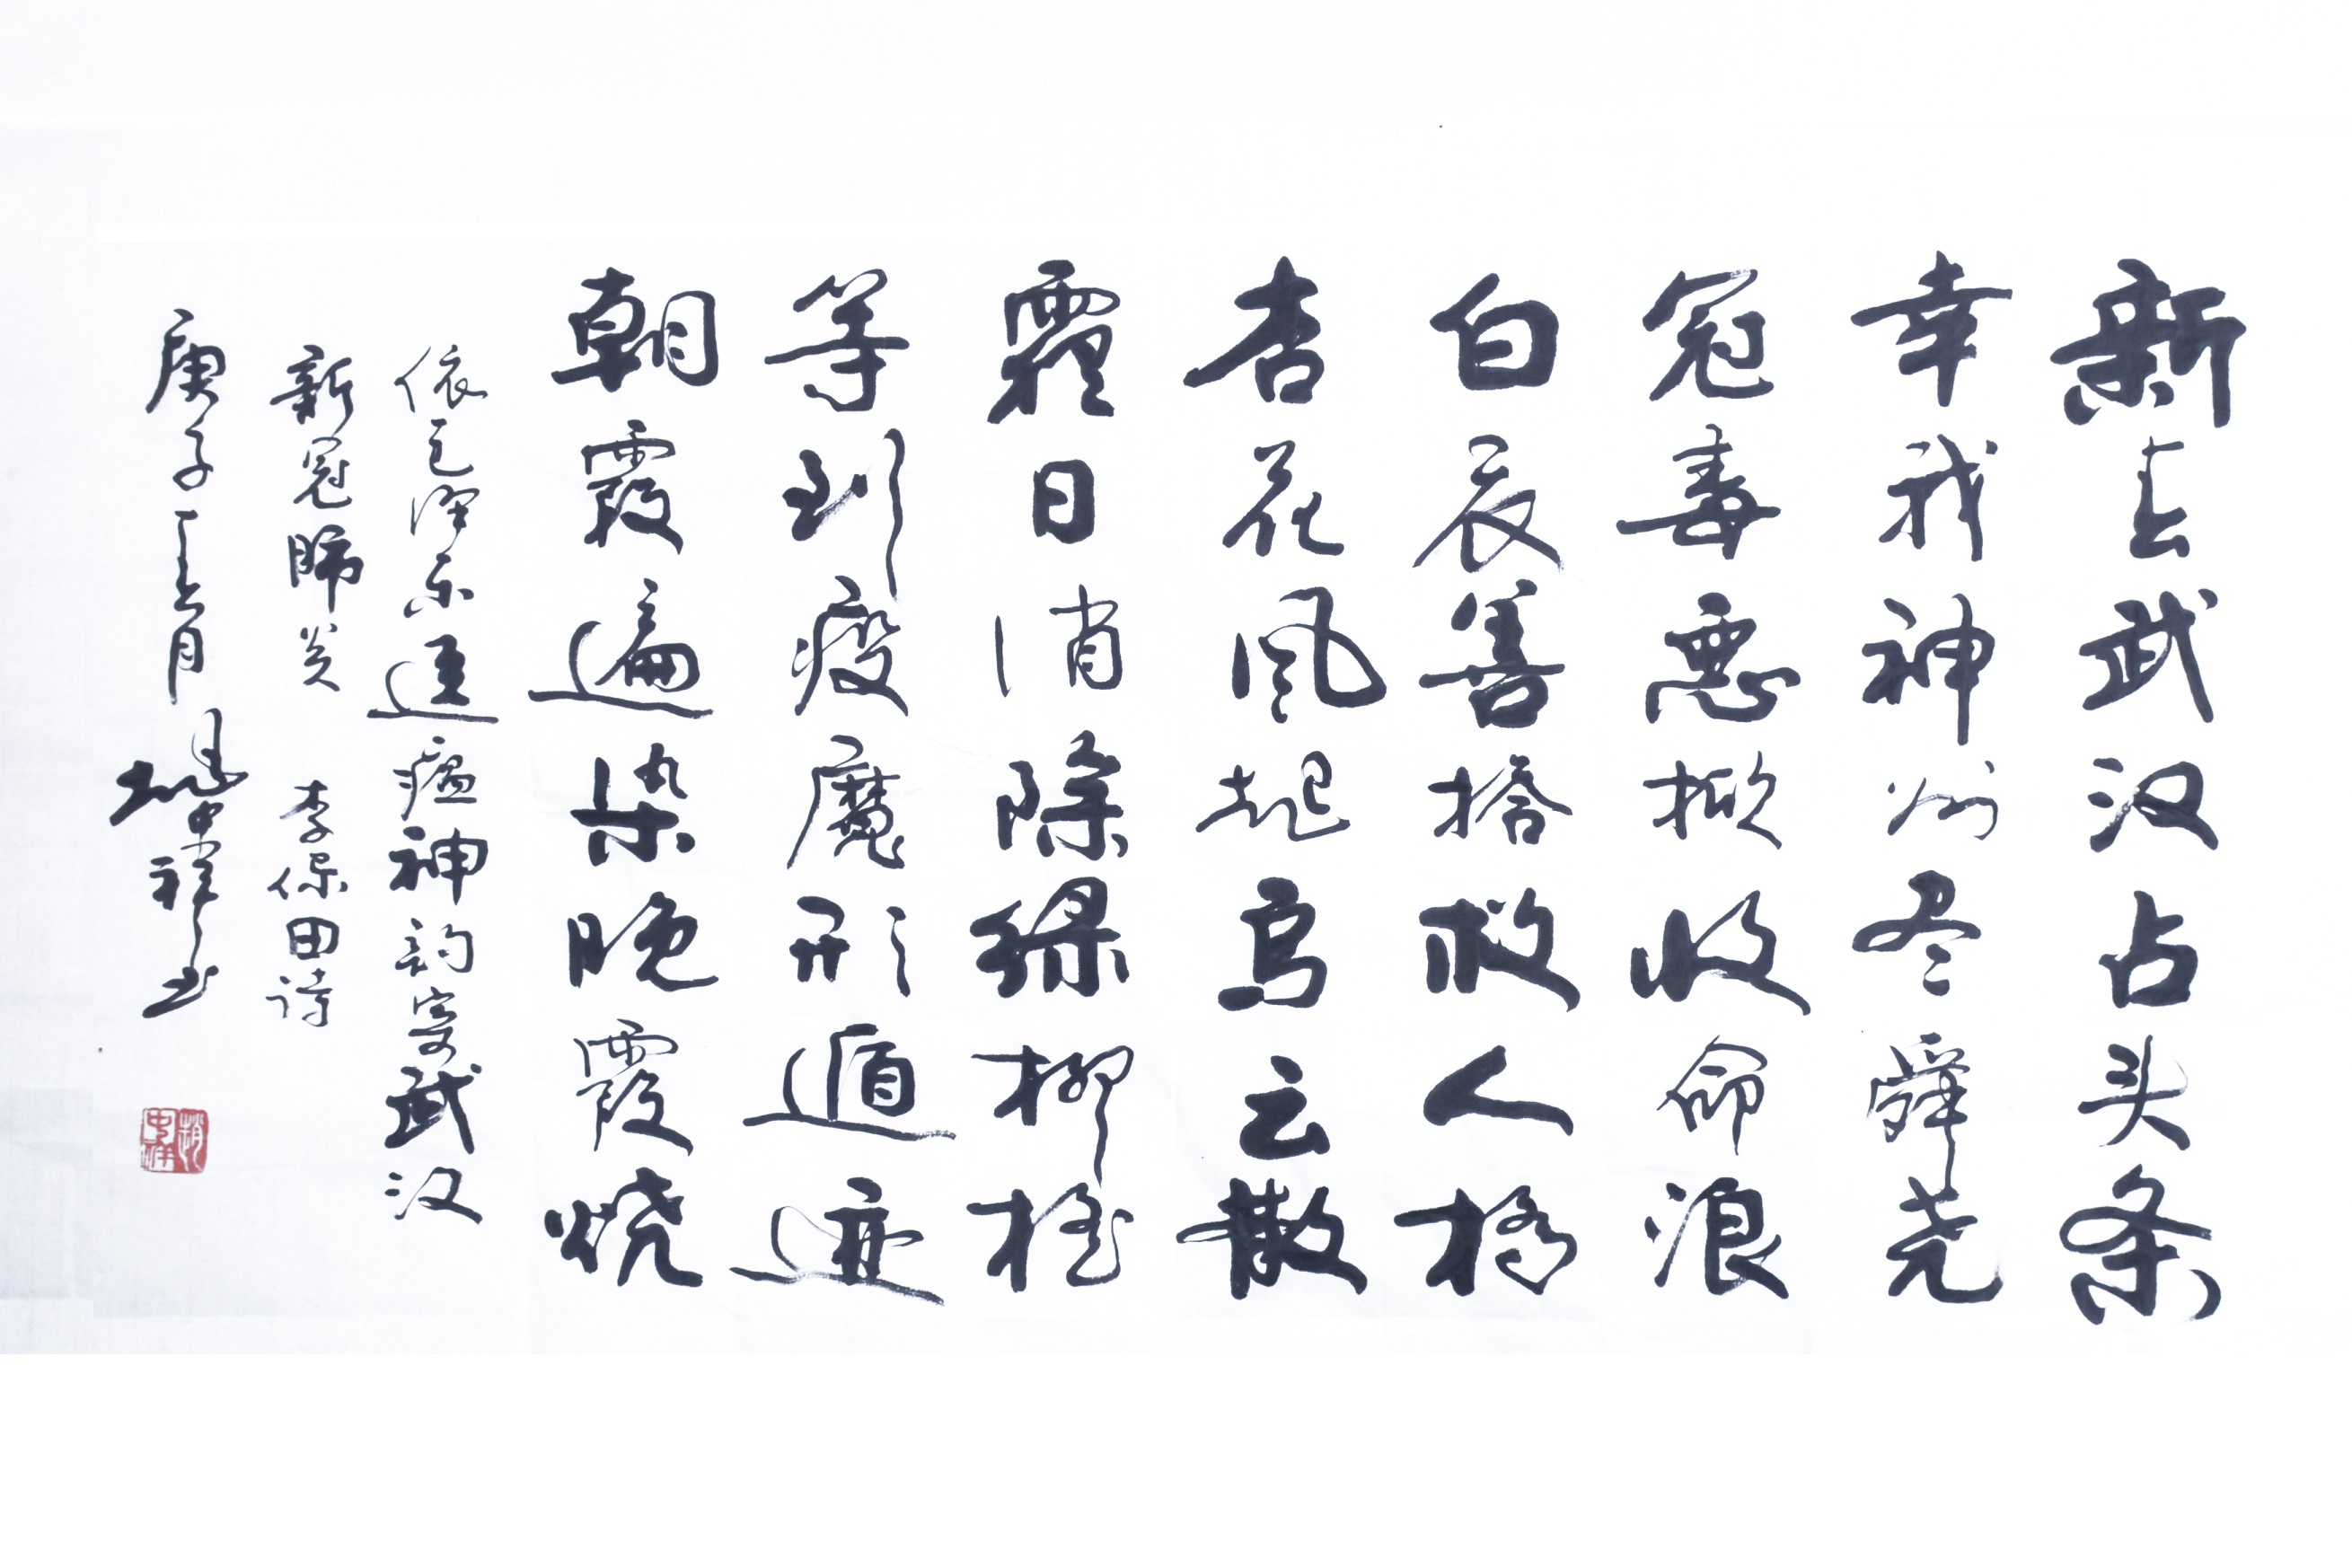 新春武汉占头条
幸我神州尽舜尧
冠毒恶掀收命浪
白衣善搭救人桥
杏花风起乌云散
日消除绿柳摇
等到疫魔形遁迹
朝霞遍染晚霞烧
依毛泽东送瘟神韵寄武汉
新冠肺炎 李保田诗
庚子春月 书